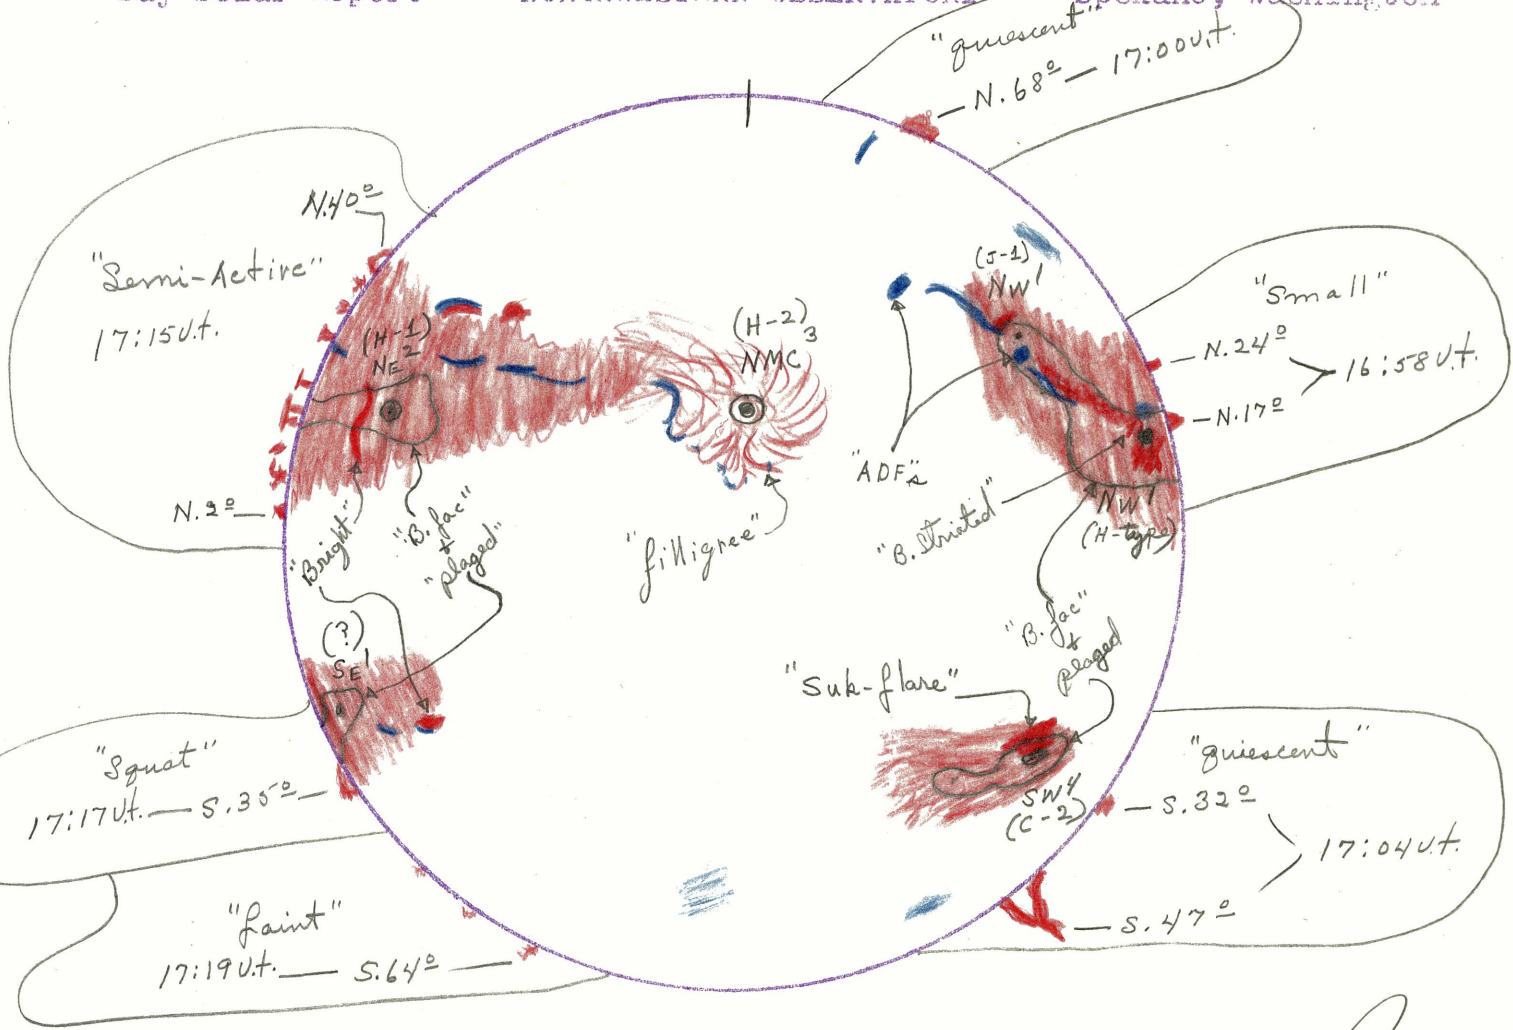 "quiescent"
N.68º — 17:00 U.t.
N.40º
"Semi-Active"
17:15 U.t.
(H-1)
NE 2
(H-2)3
NMC
(J-1)
NW1
"Small"
N.24º
16:58 U.t.
N.17º
"ADF's"
N.2º
"Bright"
"B. fac"
+
"plaged"
"filligree"
"B. Striated"
NW1
(H-type)
"B. fac"
+
plaged
(?)
SE1
"Sub-flare"
SW4
(C-2)
"Squat"
17:17 U.t. — S.35º
"quiescent"
S.32º
17:04 U.t.
S.47º
"faint"
17:19 U.t. — S.64º